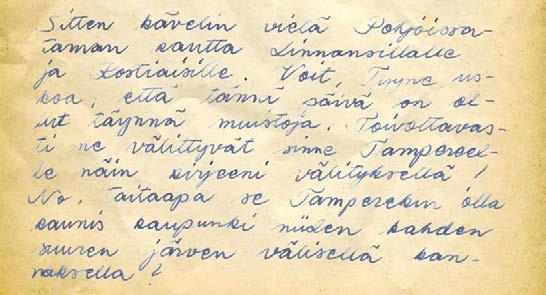 Sitten kävelin vielä Pohjoissa-
taman kautta Linnansillalle
ja Kostiaisille. Voit, Tyyne, us-
koa, että tämä päivä on ol-
lut täynnä muistoja. Toivottavas-
ti ne välittyvät sinne Tampereel-
le näin kirjeeni välityksellä!
No, taitaapa se Tamperekin olla
kaunis kaupunki niiden kahden
suuren järven välisellä kan-
naksella?